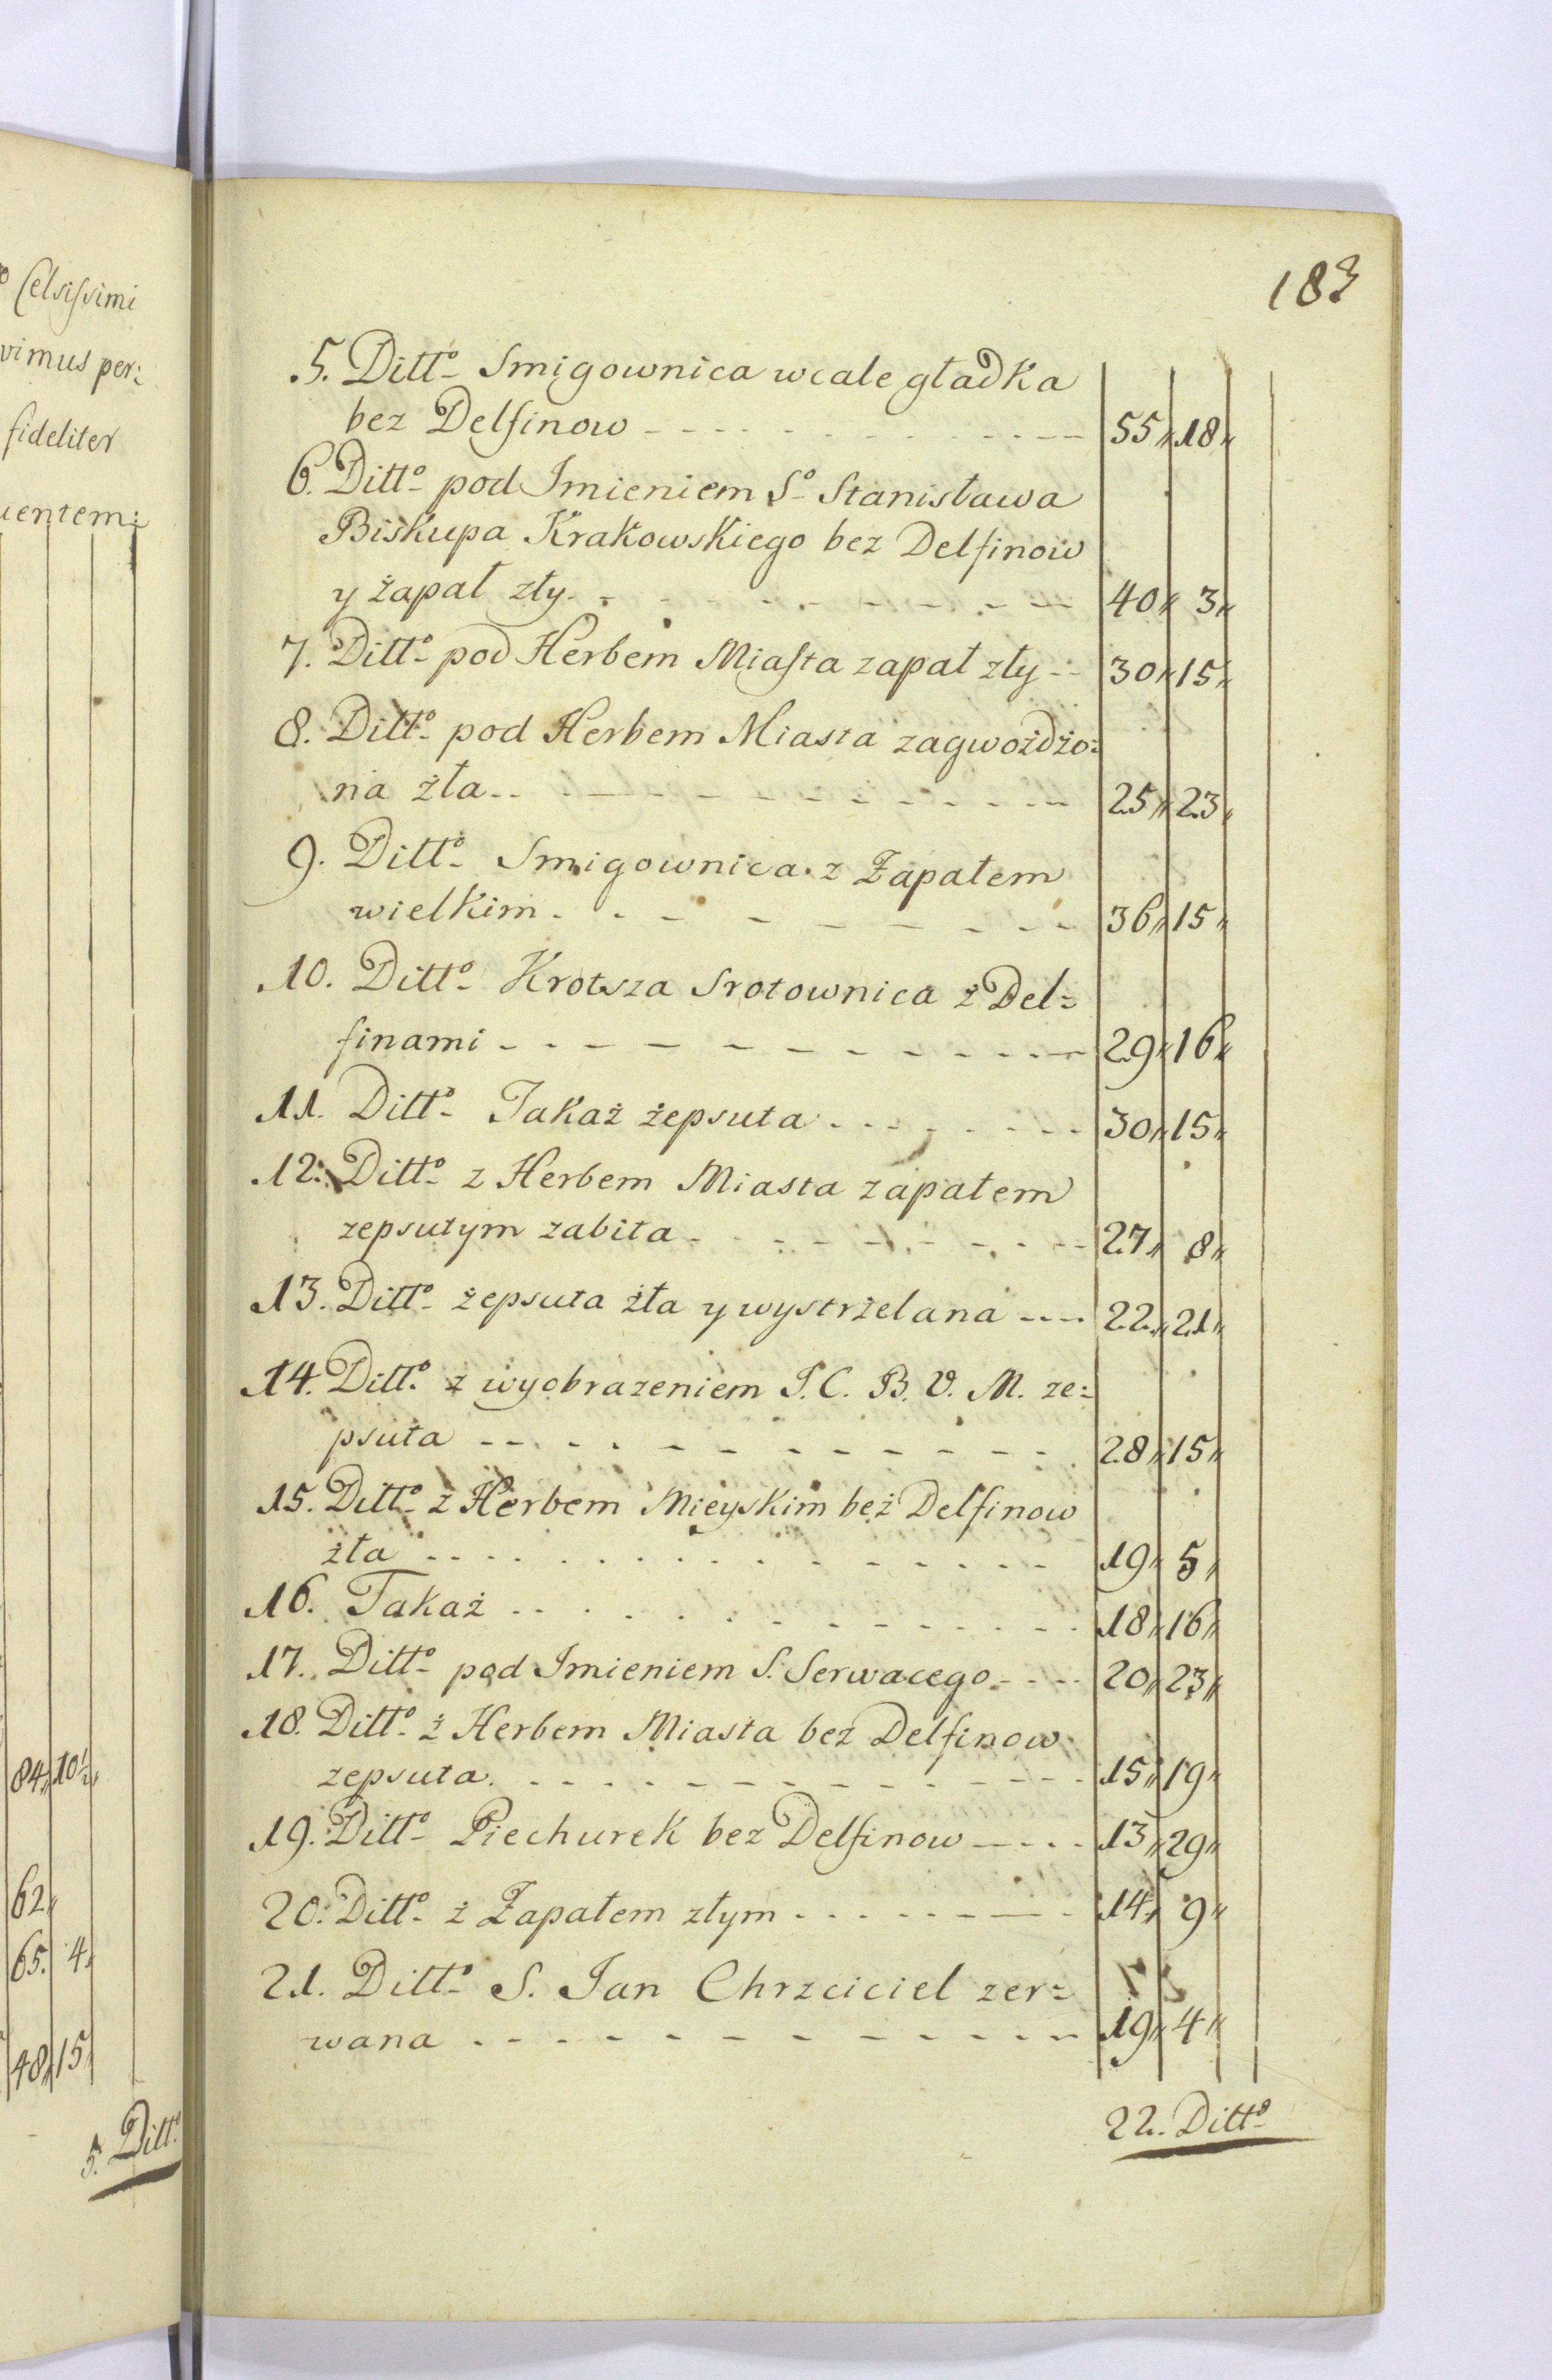 183
5. Ditto Smigownica wcale gładka
bez Delfinow - - - - - - - - - - 55 „ 18 „
6. Ditto pod Imieniem So Stanisława
Biskupa Krakowskiego bez Delfinow
y żapał zły - - - - - - - - - - 40 „ 3 „
7. Ditto pod Herbem Miasta zapał zły - - 30 „ 15 „
8. Ditto pod Herbem Miasta zagwożdżo=
na żła - - - - - - - - - - 25 „ 23 „
9. Ditto Smigownica z Zapałem
wielkim - - - - - - - - 36 „ 15 „
10. Ditto Krotsza Srotownica ż Del=
finami - - - - - - - - - - 29 „ 16 „
11. Ditto Takaż żepsuta - - - - - - - 30 „ 15 „
12. Ditto z Herbem Miasta zapałem
zepsutym zabita - - - - - - - - 27 „ 8 „
13. Ditto żepsuta żła y wystrżelana - - - - 22 „ 21 „
14. Ditto ż wyobrazeniem I. C. B. V. M. ze=
psuta - - - - - - - - - - 28 „ 15 „
15. Ditto ż Herbem Mieyskim beż Delfinow
żła - - - - - - - - - - 19 „ 5 „
16. Takaż - - - - - - - - - - 18 „ 16 „
17. Ditto pod Imieniem S. Serwacego - - - - 20 „ 23 „
18. Ditto ż Herbem Miasta beż Delfinow
zepsuta - - - - - - - - - - 15 „ 19 „
19. Ditto Piechurek bez Delfinow - - - - 13 „ 29 „
20. Ditto ż Zapałem złym - - - - - - - 14 „ 9 „
21. Ditto S. Jan Chrzciciel zer=
wana - - - - - - - - - - 19 „ 4 „
22. Ditto
Celsissimi
vimus per=
fideliter
uentem:
84 „ 10½ „
62 „
65. 4 „
48 „ 15 „
5. Ditto